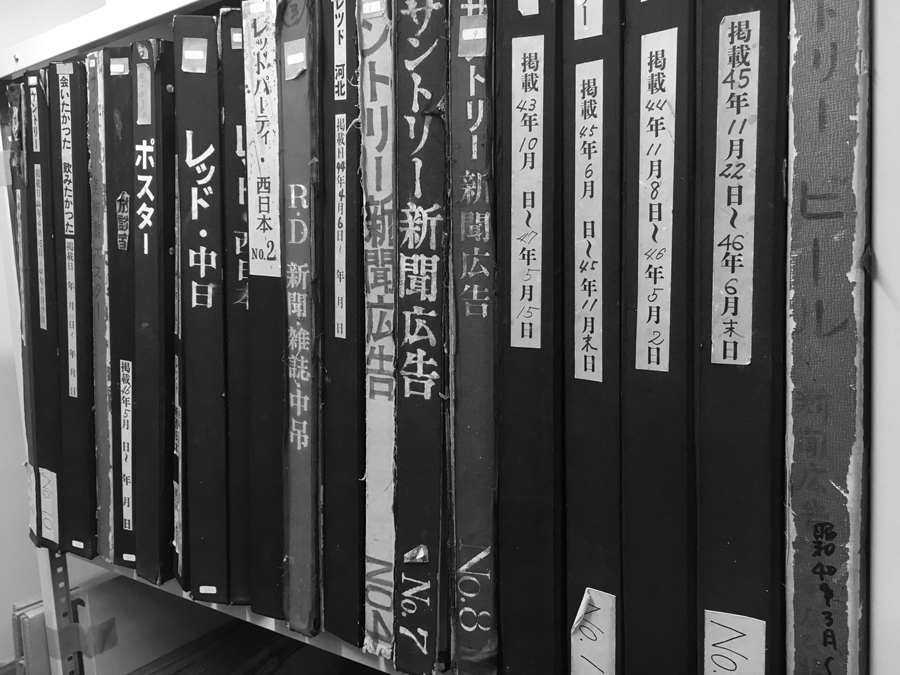 会いたかった 飲みたかった
掲載日 年 月 日〜 年 月 日
掲載46年5月 日〜 年 月 日
ポスター
レッド・中日
レッドパーティ・西日本 NO.2
R.D 新聞・雑誌・中吊
レッド 河北
掲載日44年4月6日〜 年 月 日
ントリー新聞広告
NO.4
サントリー新聞広告
No.7
トリー新聞広告
No.8
掲載43年10月 日〜47年5月15日
掲載45年6月 日〜45年11月末日
No.1
掲載44年11月8日〜46年5月2日
掲載45年11月22日〜46年6月末日
No.
トリービール
昭和40年3月〜
No.10